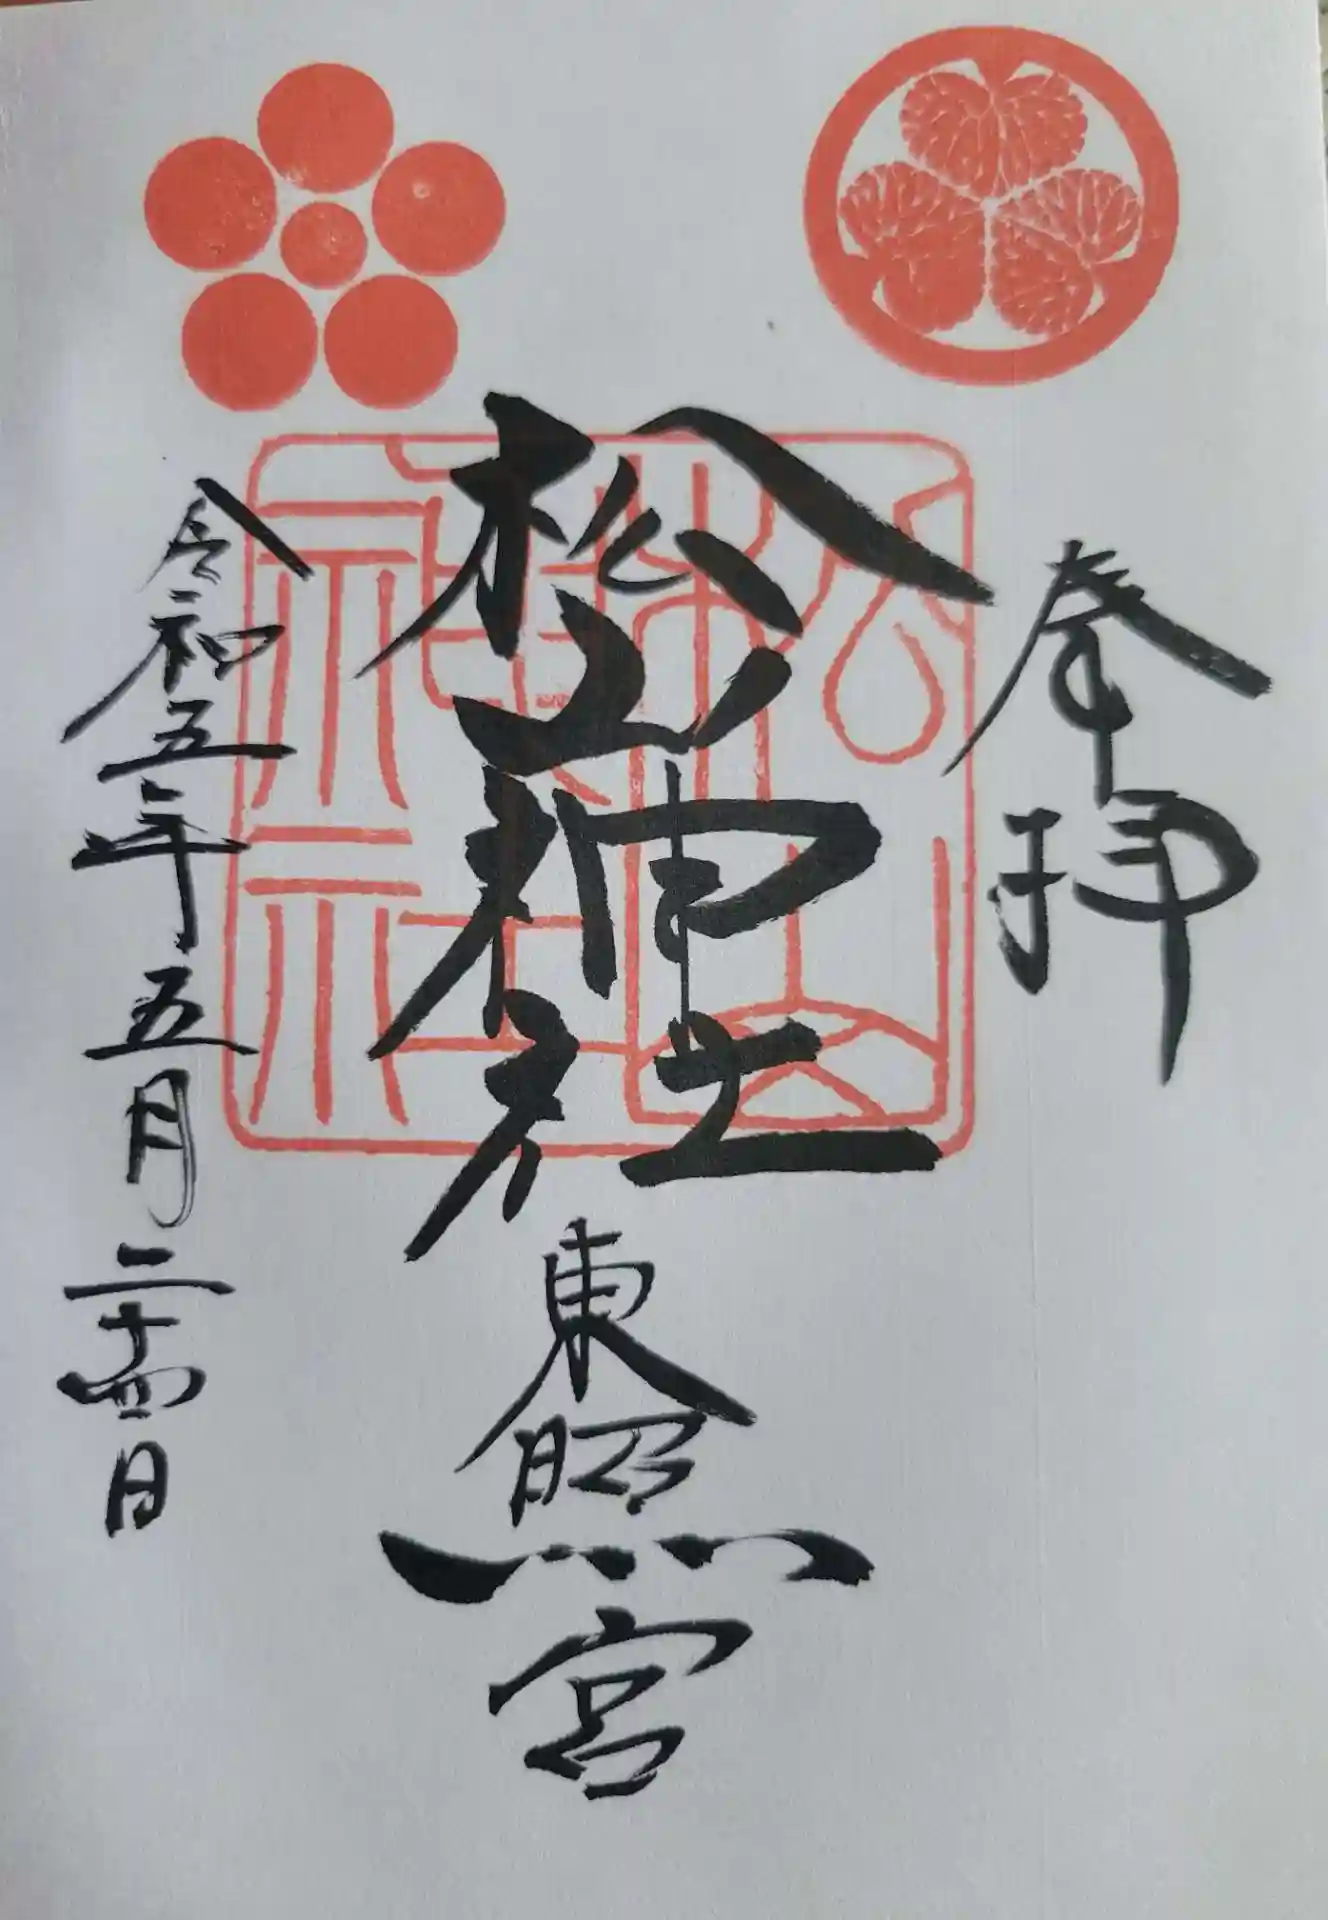 奉拝
松山神社
東照宮
令和五年五月二十四日
松山神社